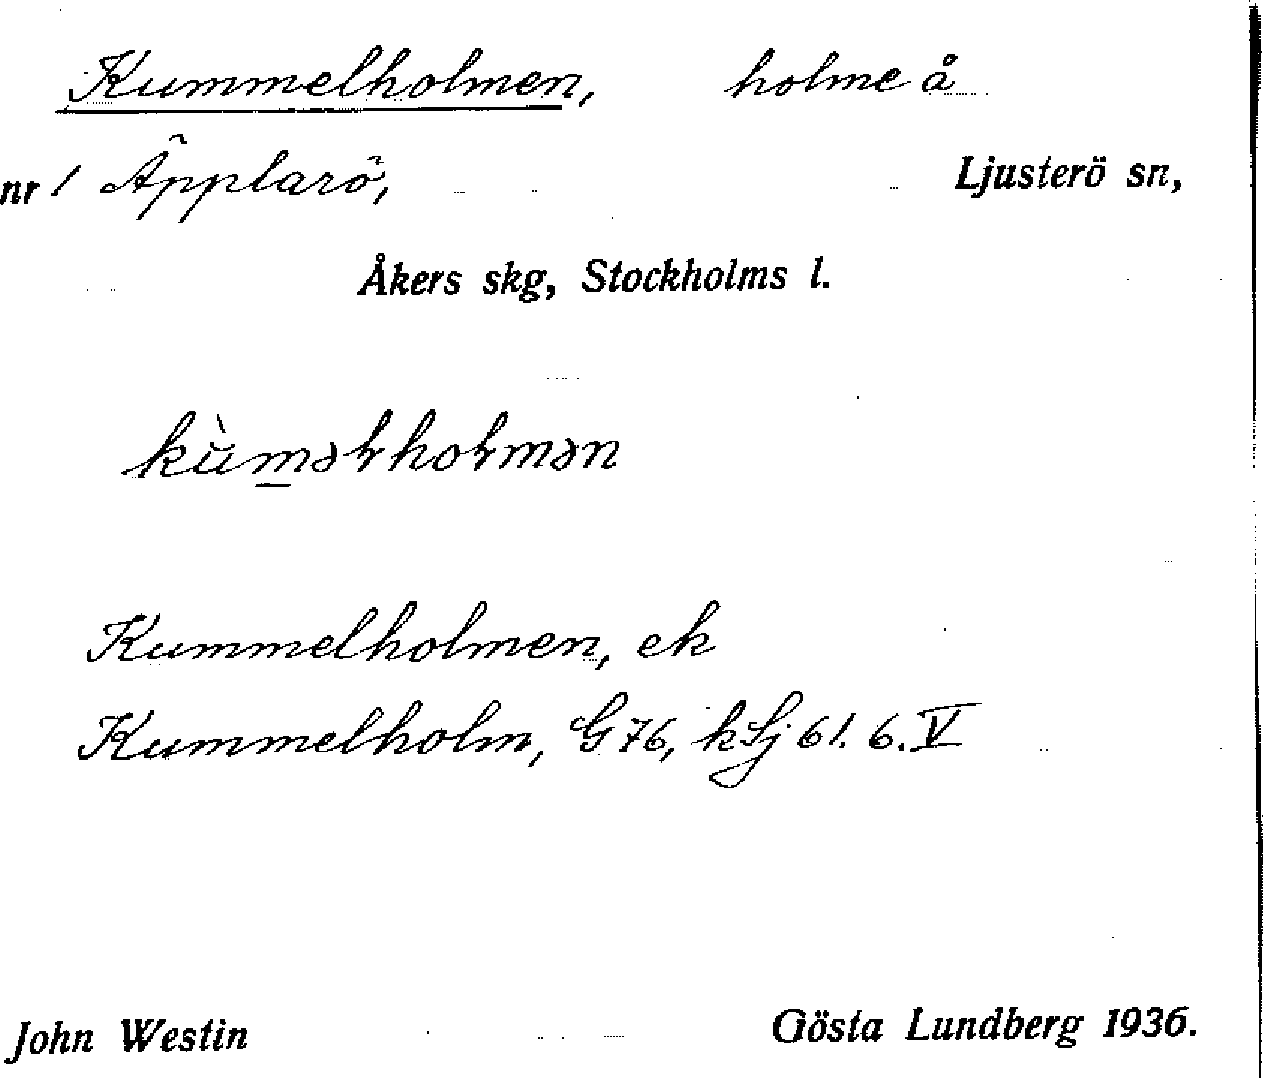 Kummelholmen, holme å
nr 1 Äpplarö, Ljusterö sn,
Åkers skg, Stockholms l.
kùm̲əɫhoɫmən
Kummelholmen, ek
Kummelholm, G 76, kLj 61. 6. V
John Westin Gösta Lundberg 1936.